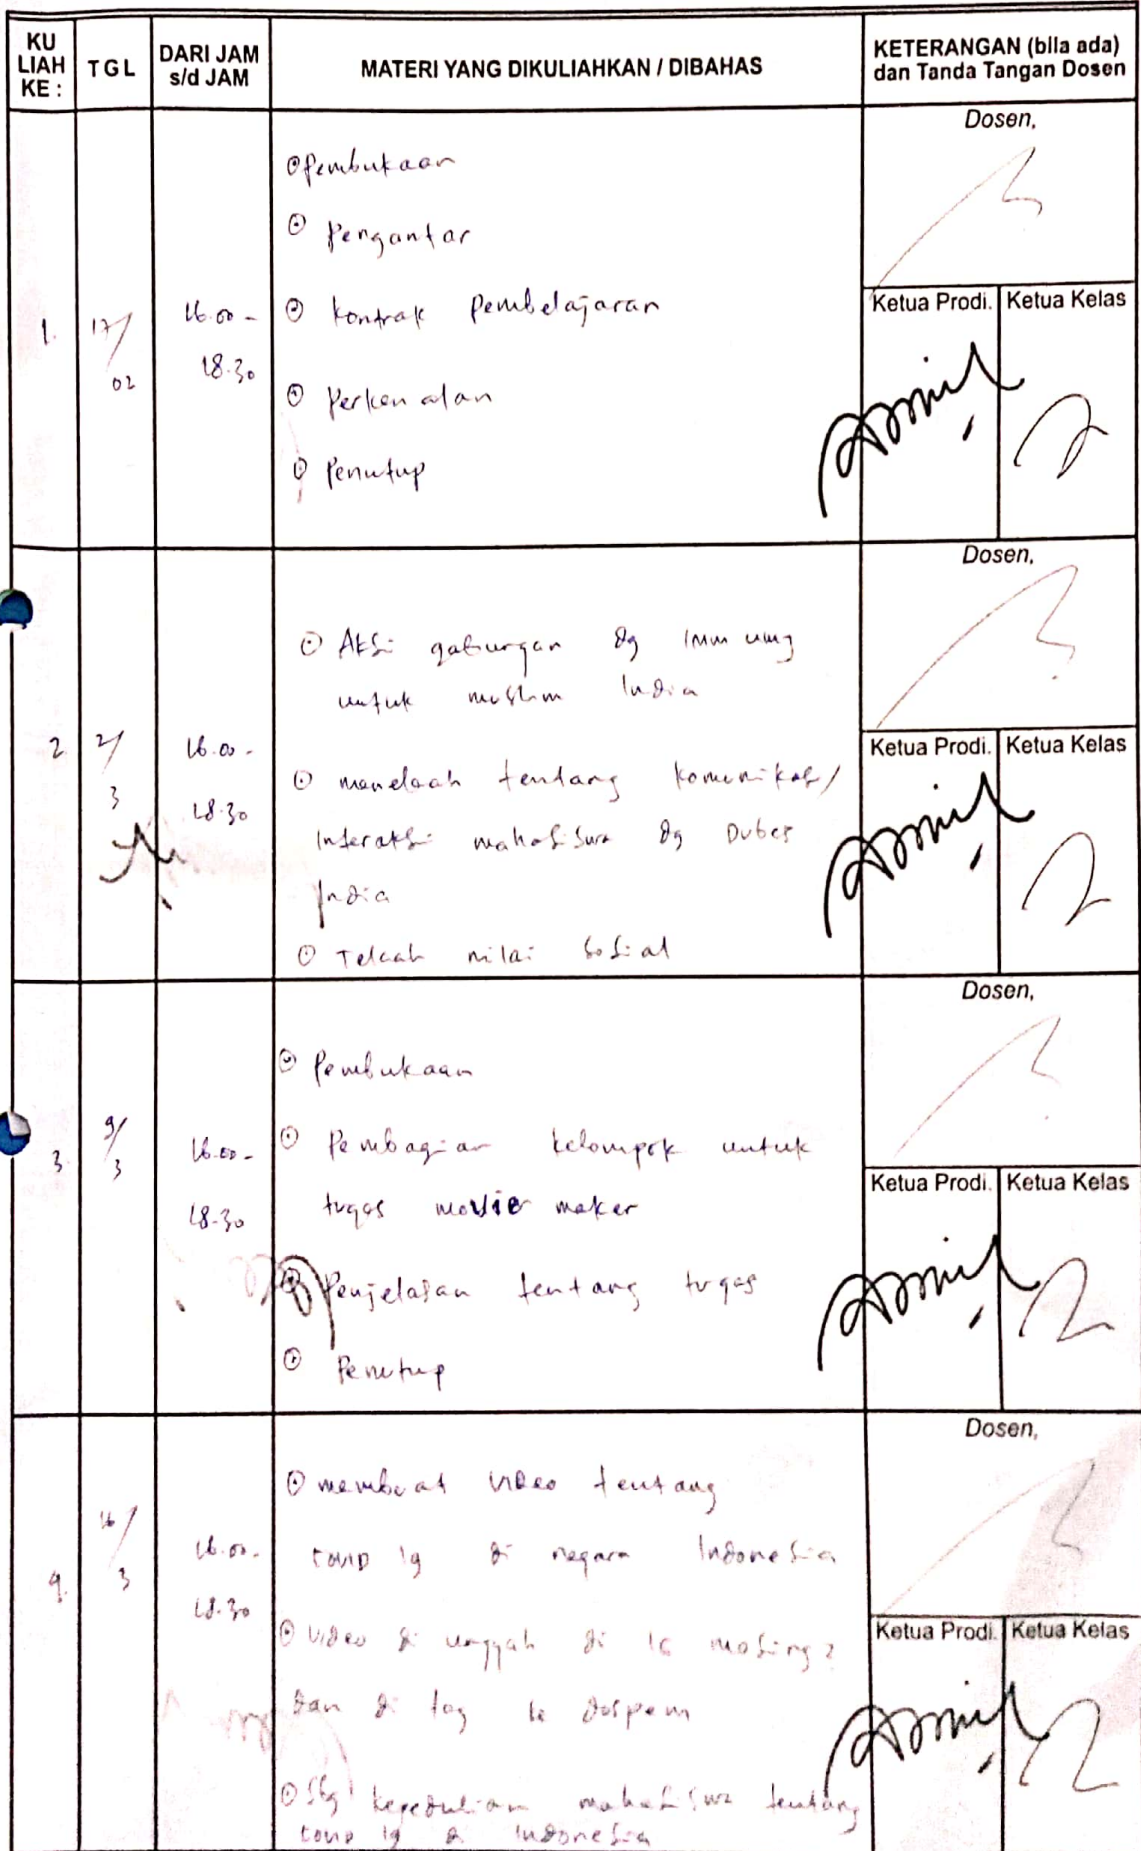 KU LIAH KE :
TGL
DARI JAM s/d JAM
MATERI YANG DIKULIAHKAN / DIBAHAS
KETERANGAN (bila ada) dan Tanda Tangan Dosen
1.
17/02
16.00 - 18.30
Pembukaan
Pengantar
Kontrak Pembelajaran
Perkenalan
Penutup
Dosen,
Ketua Prodi.
Ketua Kelas
2
2/3
16.00 - 18.30
Aksi gabungan dg IMM umg
untuk muslim India
menelaah tentang komunikasi/
Interaksi mahasiswa dg Dubes
India
Telaah nilai sosial
Dosen,
Ketua Prodi.
Ketua Kelas
3.
9/3
16.00 - 18.30
Pembukaan
Pembagian kelompok untuk
tugas movie maker
Penjelasan tentang tugas
Penutup
Dosen,
Ketua Prodi.
Ketua Kelas
4.
16/3
16.00 - 18.30
membuat video tentang
covid 19 di negara Indonesia
video di unggah di IG masing2
dan di tag ke dospem
sbg kepedulian mahasiswa tentang
covid 19 di Indonesia
Dosen,
Ketua Prodi.
Ketua Kelas